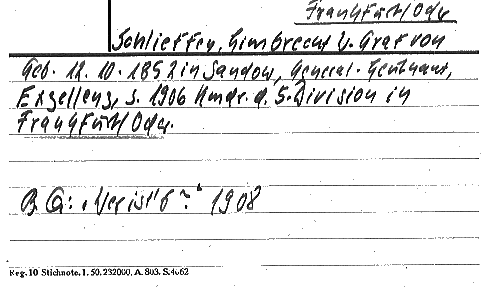 Frankfurt/Oder
Schlieffen, Wimbrecht V. Graf von
Geb. 12. 10. 1852 in Sandow, General-Leutnant,
Exzellenz, s. 1906 Kmdr. d. 5. Division in
Frankfurt/Oder.
B. Q.: „Wer ist's?“ 1908
Reg. 10 Stichnote. 1. 50. 232000. A. 803. S. 4662